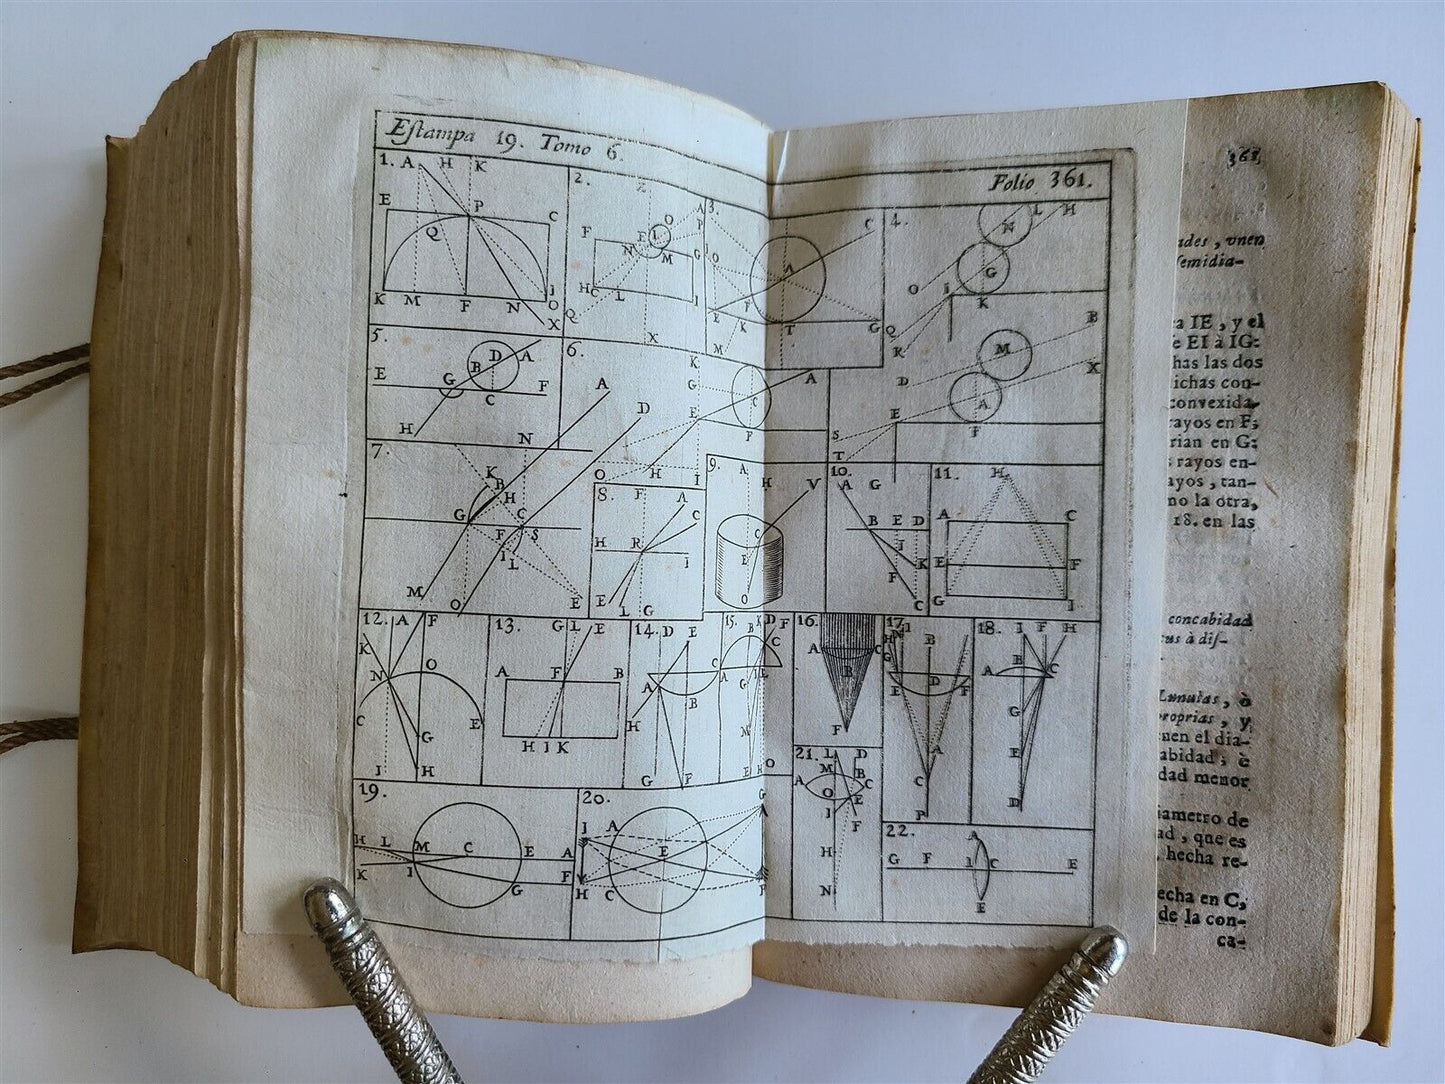 Eſtampa 19. Tomo 6.
Folio 361.
1. A H K
E P C
Q
K M F N O
X
2.
F
N M G
H L I
Q X
3.
C
A
E F
K T G
M
4. L H
N
G
O I K
Q
R
B
M
D X
A
E
F
S
T
5.
D A
B
E G F
C
H
6.
A
D
K
G C A
E
F
O H I
7. N
K
B
H
G C
F S
I L
M O E
8. F A
C
H R I
E L G
9. A
H V
C
E
O
10. A G
B E D
I
K
F
C
11. H
A C
E F
G I
12. A F
K
N O
C E
G
I H
13. G L E
A F B
H I K
14. D E
A C
B
H
G F
15. B K D F
C
A I L
G
M
E H O
16.
A C
B
F
17. I B
H N
G
E D F
A
C
P
18. I F H
A B C
G
E
D
19.
H L M C E A
K I G F
20.
I A G
E
H C F
21. L D
M B
A C
O E
I F
H
N
22. A
G F I C E
E
361
ades , vnen
ſemidia-
a IE , y el
e EI à IG:
has las dos
ichas con-
convexida-
rayos en F;
rian en G:
s rayos en-
ayos , tan-
no la otra,
18. en las
concabidad
us à diſ-
Lunulas, ò
proprias , y
nen el dia-
abidad ; è
dad menor
iametro de
ad , que es
, hecha re-
echa en C,
de la con-
ca-